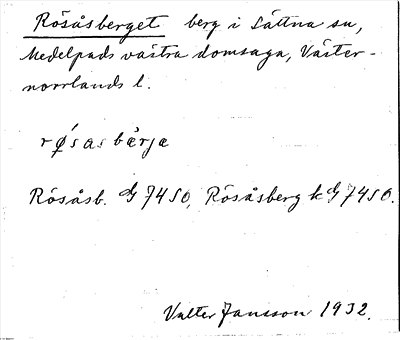 Rösåsberget berg i Sättna sn,
Medelpads västra domsaga, Väster-
norrlands l.
røsasbärja
Rösåsb. G 7450, Rösåsberg k G 7450.
Valter Jansson 1932.